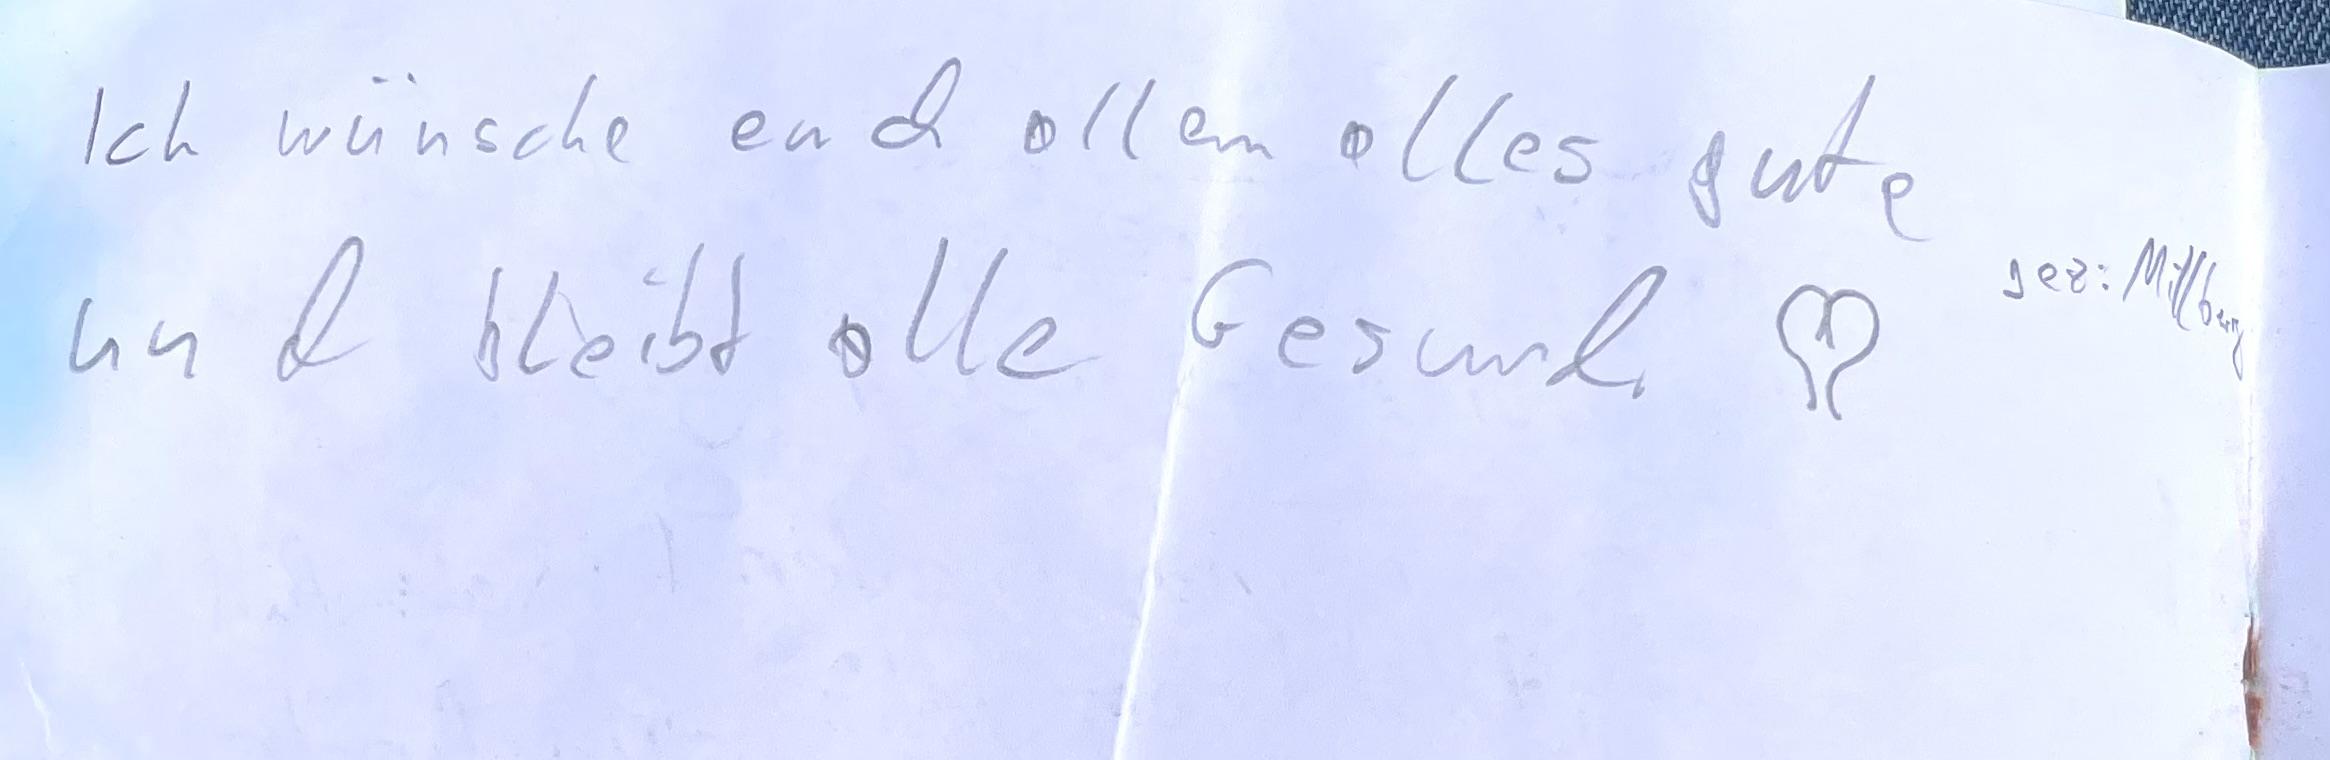 Ich wünsche euch allen alles gute
und bleibt alle Gesund.
gez: Millberg